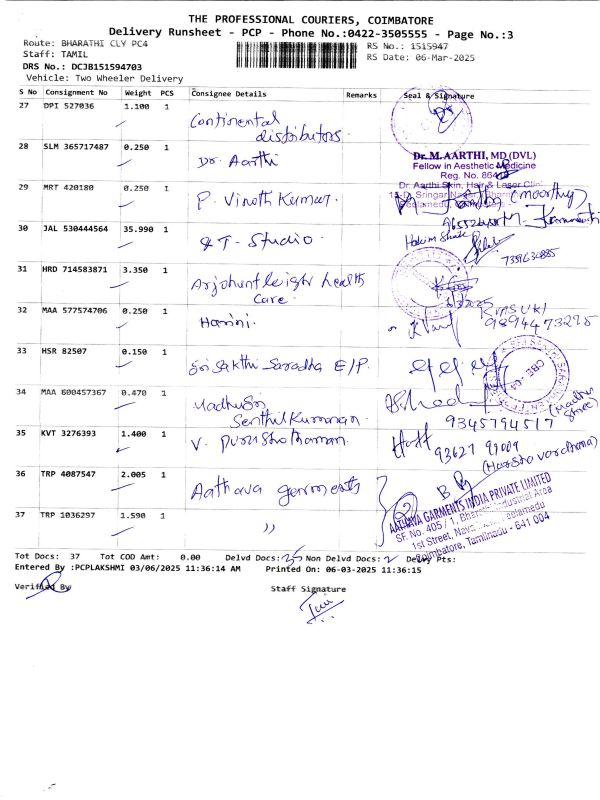 THE PROFESSIONAL COURIERS, COIMBATORE
Delivery Runsheet - PCP - Phone No.:0422-3505555 - Page No.:3
Route: BHARATHI CLY PC4 RS No.: 1515947
Staff: TAMIL RS Date: 06-Mar-2025
DRS No.: DCJB151594703
Vehicle: Two Wheeler Delivery
S No Consignment No Weight PCS Consignee Details Remarks Seal & Signature
27 DPI 527036 1.100 1
Continental
distributors.
28 SLM 365717487 0.250 1
Dr. Aarthi
Dr. M. AARTHI, MD (DVL)
Fellow in Aesthetic Medicine
Reg. No.
Dr. Aarthi Skin, Hair & Laser Clinic
29 MRT 420180 0.250 1
P. Vinoth Kumar.
(Moorthy)
30 JAL 530444564 35.990 1
Studio.
7339630885
31 HRD 714583871 3.350 1
health
care.
32 MAA 577574706 0.250 1
Harini.
9894473295
33 HSR 82507 0.150 1
Sri Sakthi Saradha E/P.
34 MAA 600457367 0.470 1
Madhusri
Senthil Kumaran.
9345794517
(Madhu
Shree)
35 KVT 3276393 1.400 1
V. Purushothaman.
93627 99009
(Harsha vardhana)
36 TRP 4087547 2.005 1
Aathava garments
AATHAVA GARMENTS INDIA PRIVATE LIMITED
SF. No. 405 / 1, Bharathi Industrial Area
1st Street,
Coimbatore, Tamilnadu - 641 004
37 TRP 1036297 1.590 1
"
Tot Docs: 37 Tot COD Amt: 0.00 Delvd Docs: 35 Non Delvd Docs: 2 Delvy Pts:
Entered By :PCPLAKSHMI 03/06/2025 11:36:14 AM Printed On: 06-03-2025 11:36:15
Verified By Staff Signature